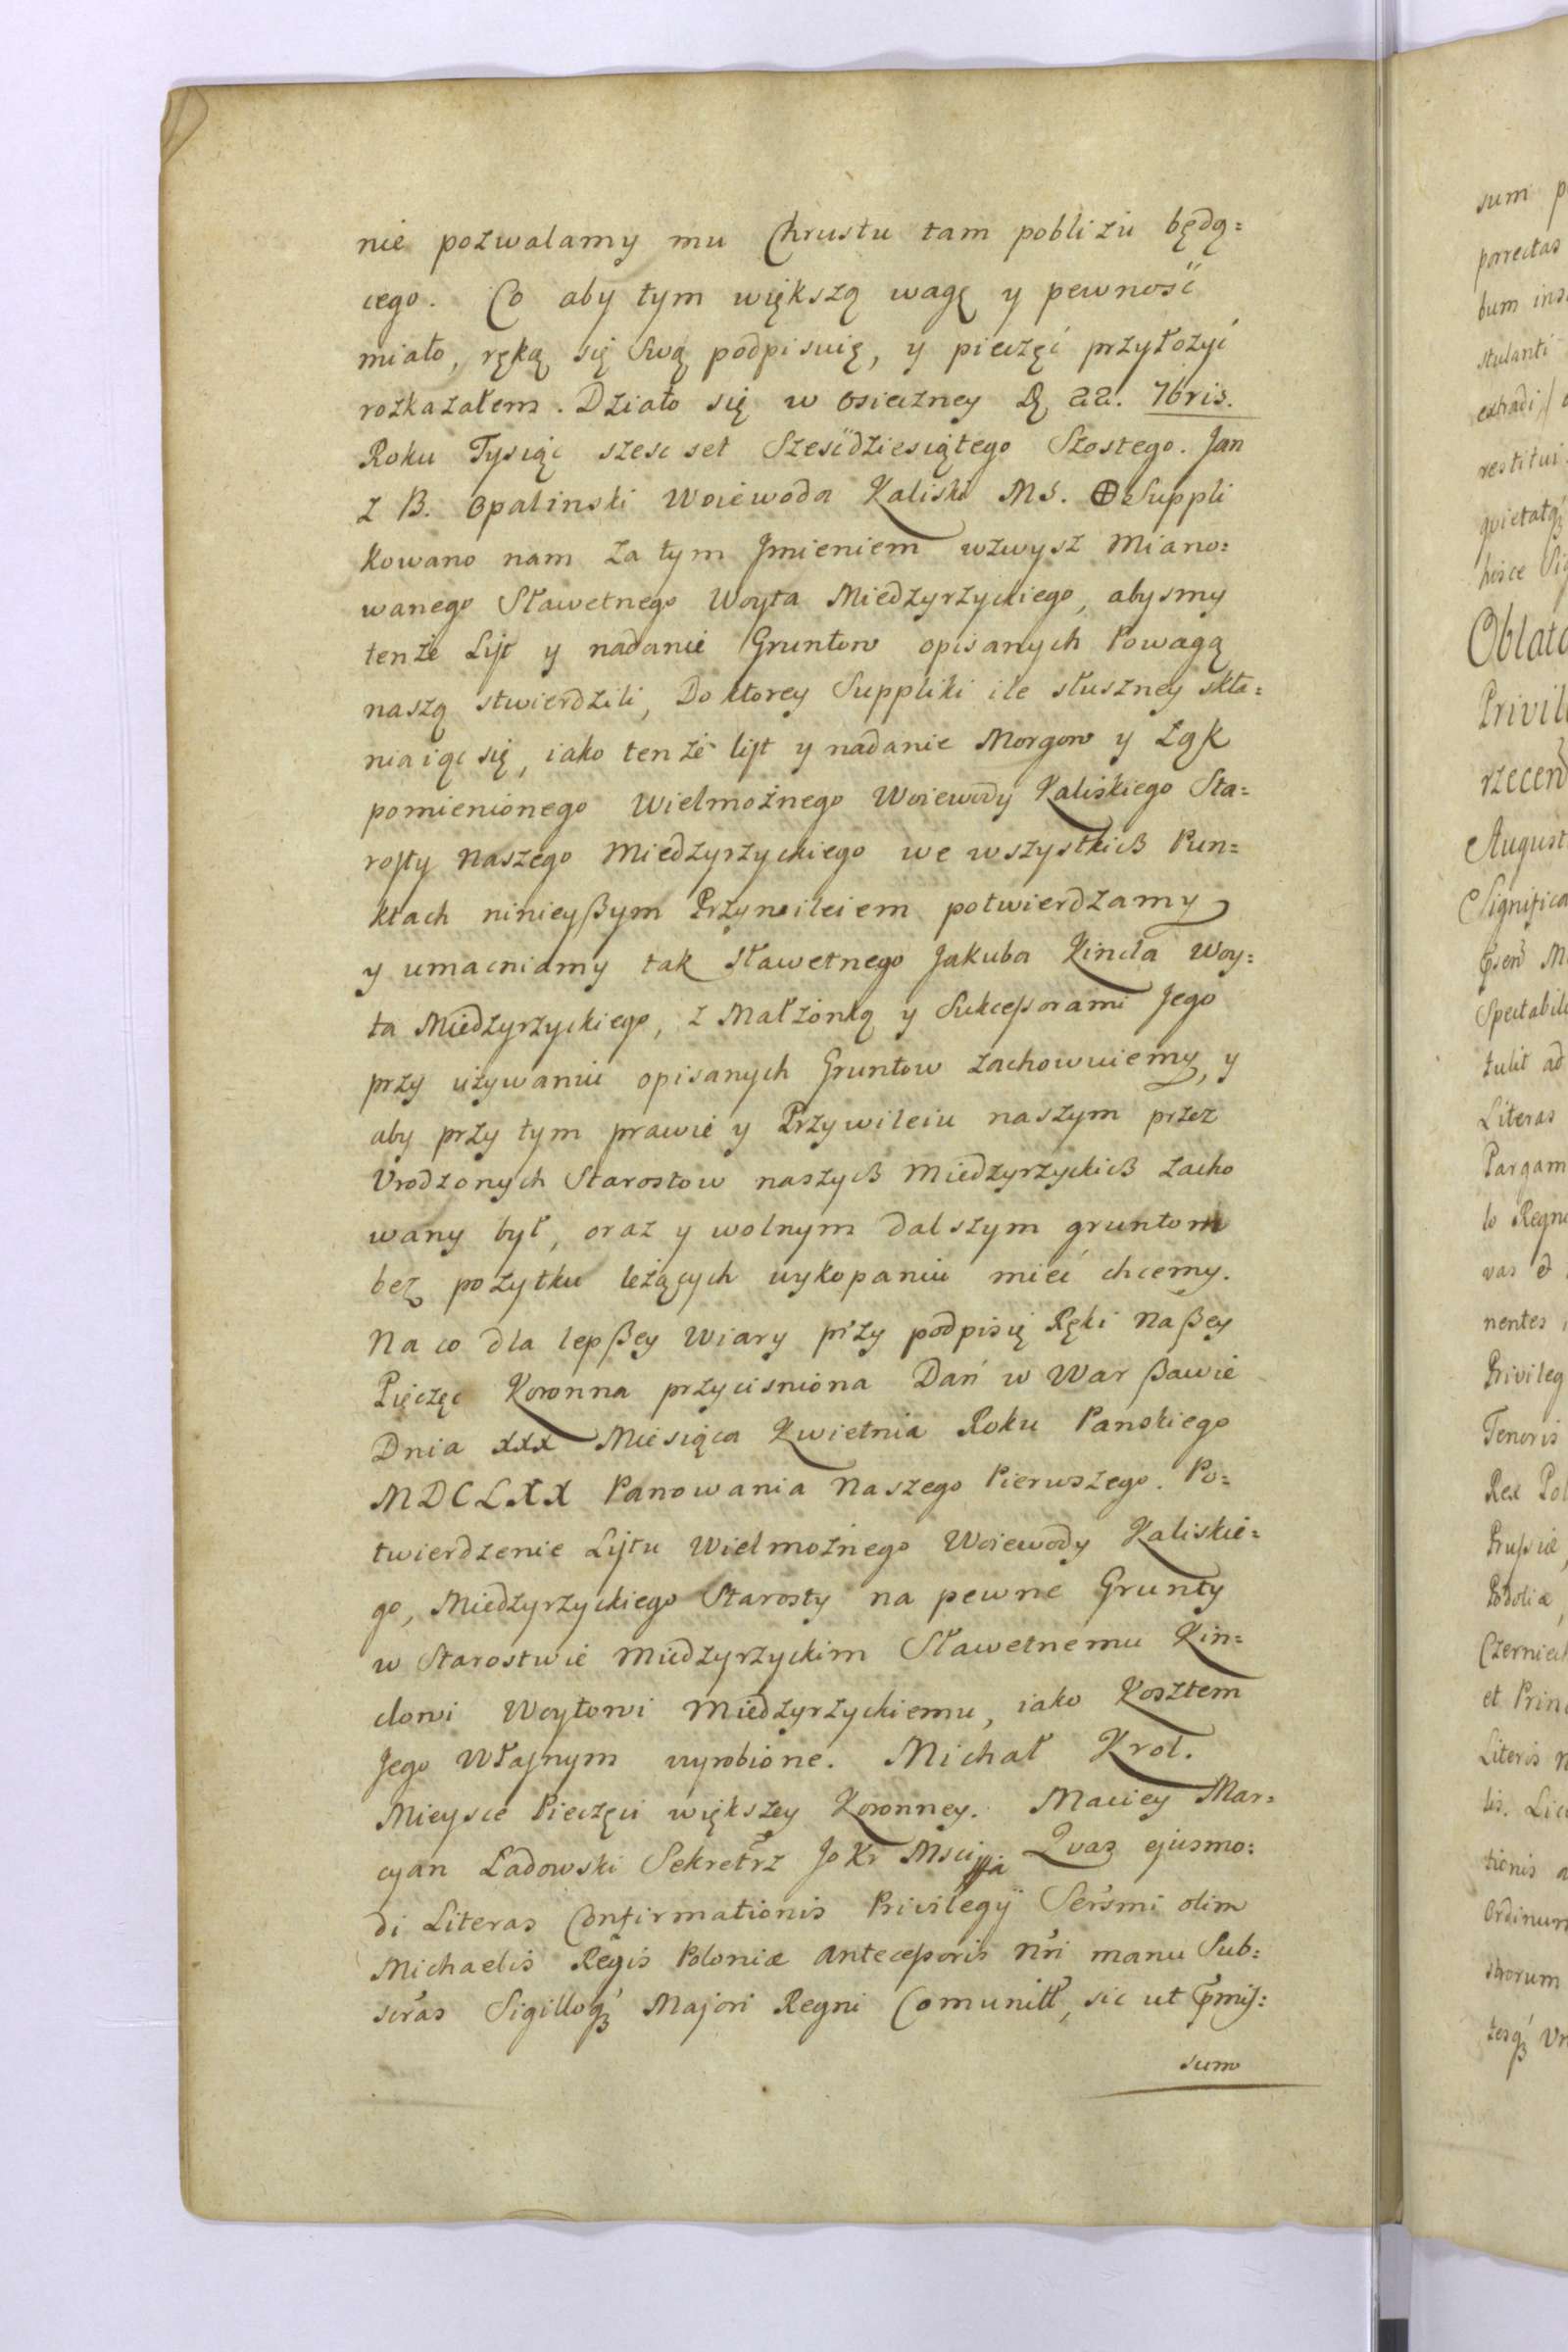 nie pozwalamy mu Chrustu tam pobliżu będą=
cego. Co aby tym większą wagę y pewność
miało, ręką się Swą podpisuię, y pieczęć przyłożyć
rozkazałem. Działo się w Osieczney D. 22. 7bris.
Roku Tysiąc szesc set Sześćdziesiątego Szostego. Jan
z B. Opalinski Woiewoda Kaliski M.S. ⊕ Suppli
kowano nam za tym Jmieniem wzwysz miano=
wanego Sławetnego Woyta Miedzyrzyckiego, abysmy
tenże List y nadanie Gruntow opisanych Powagą
naszą stwierdzili, Do ktorey Suppliki ile słuszney skła=
niaiąc się, iako tenże list y nadanie Morgow y Łąk
pomienionego Wielmożnego Woiewody Kaliskiego Sta=
rosty Naszego Miedzyrzyckiego we wszystkich Pun=
ktach ninieyßym Przywileiem potwierdzamy
y umacniamy tak Sławetnego Jakuba Kincla Woy=
ta Miedzyrzyckiego, z Małżonką y Sukcessorami Jego
przy używaniu opisanych Gruntow zachowuiemy, y
aby przy tym prawie y Przywileiu naszym przez
Urodzonych Starostow naszych Miedzyrzyckich zacho
wany był, oraz y wolnym dalszym gruntom
bez pożytku leżących wykopaniu mieć chcemy.
Na co dla lepßey Wiary przy podpisię Ręki Naßey
Pięczęc Koronna przycisniona Dań w Warßawie
Dnia XXX Miesiąca Kwietnia Roku Panskiego
MDCLXX Panowania Naszego Pierwszego. Po=
twierdzenie Listu Wielmożnego Woiewody Kaliskie=
go, Miedzyrzyckiego Starosty na pewne Grunty
w Starostwie Miedzyrzyckim Sławetnemu Kin=
clowi Woytowi Miedzyrzyckiemu, iako Kosztem
Jego Własnym wyrobione. Michał Krol.
Mieysce Pieczęci większey Koronney. Maciey Mar=
cyan Ladowski Sekretrz Jo Kr Msci Quas ejusmo=
di Literas Confirmationis Privilegÿ Sersmi olim
Michaelis Regis Poloniæ Antecessoris Nri manu Sub=
scras Sigilloq₃ Majori Regni Comunitt, sic ut pmis=
sum